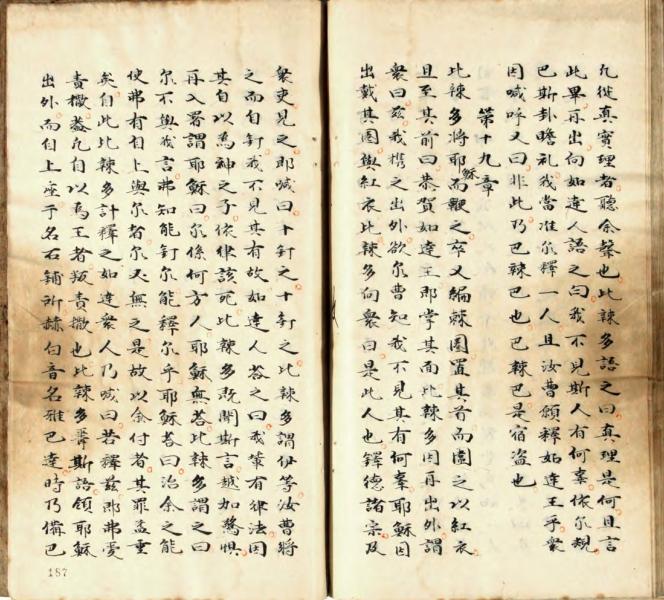 凡從真實理者聽余聲也比辣多語之曰真理是何且言
此畢再出向如達人語之曰我不見斯人有何辜依尔規
巴斯卦瞻礼我當准尔釋一人且汝曹願釋如達王乎衆
因喊呼又曰非此乃巴辣巴也巴辣巴是宿盗也
第十九章
比辣多將耶穌而鞭之卒又編棘圈置其首而圍之以紅衣
且至其前曰恭賀如達王即掌其面比辣多因再出外謂
衆曰茲我携之出外欲尔曹知我不見其有何辜耶穌因
出戴其圈與紅衣比辣多向衆曰是此人也鐸德諸宗及
衆吏見之即喊曰十釘之十釘之比辣多謂伊等汝曹將
之而自釘我不見其有故如達人答之曰我輩有律法因
其自以為神之子依律該死比辣多既聞斯言越如驚惧
再入署謂耶穌曰尔係何方人耶穌無答比辣多謂之曰
尔不與我言弗知能釘尔能釋尔乎耶穌答曰治余之能
使弗有自上與尔者尔必無之是故以余付者其罪益重
矣自此比辣多計釋之如達衆人乃喊曰若釋茲即弗愛
責撒蓋凡自以為王者叛責撒也比辣多聞斯語領耶穌
出外而自上座于名石鋪所赫白音名雅巴達時乃備巴
187